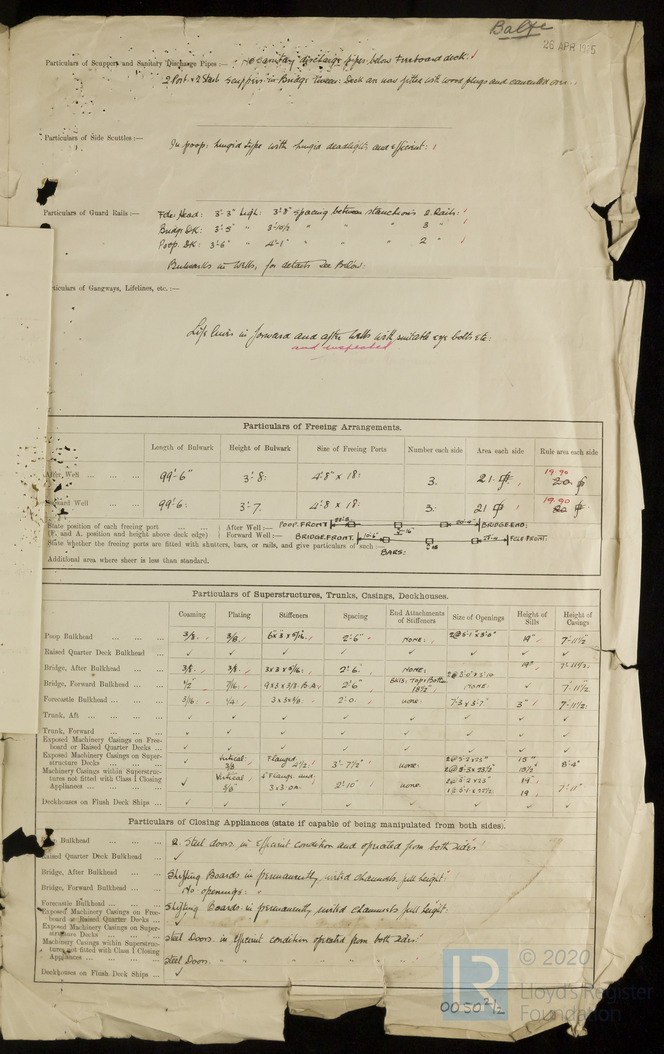 Balfe
26 APR
Particulars of Scuppers and Sanitary Discharge Pipes:— No Sanitary discharge pipes below Freeboard deck.
2 Port & 2 Starb Scuppers in Bridge Tween Deck are now fitted with wood plugs and cemented over.
Particulars of Side Scuttles:—
In poop: hinged type with hinged deadlights and efficient:
Particulars of Guard Rails:— Fcle: Head: 3'-3" high: 3'-8" spacing between stanchions 2. Rails:
Bridge DK: 3'-5" " 3'-10½ " " " 3 "
Poop. DK: 3'-6" " 4'-1" " " " 2 "
Bulwarks in wells, for details see Below:
ticulars of Gangways, Lifelines, etc.:—
Life lines in forward and after wells with suitable eye bolts etc:
and inspected
Particulars of Freeing Arrangements.
Length of Bulwark Height of Bulwark Size of Freeing Ports Number each side Area each side Rule area each side
After Well 99'-6" 3'-8: 4'-8" x 18: 3. 21. 19.90 20.
Forward Well 99'-6: 3'-7. 4'-8 x 18: 3: 21 19.90 20
State position of each freeing port After Well:— POOP. FRONT BRIDGE END:
(F. and A. position and height above deck edge) Forward Well:— BRIDGE. FRONT. FCLE FRONT.
State whether the freeing ports are fitted with shutters, bars, or rails, and give particulars of such:— BARS:
Additional area where sheer is less than standard.
Particulars of Superstructures, Trunks, Casings, Deckhouses.
Coaming Plating Stiffeners Spacing End Attachments of Stiffeners Size of Openings Height of Sills Height of Casings
Poop Bulkhead 3/8. 3/8, 6x3x5/16. 2'-6" NONE: 2@5'-1"x3'-0" 19" 7'-11½
Raised Quarter Deck Bulkhead ✓ ✓ ✓ ✓ ✓ ✓ ✓ ✓
Bridge, After Bulkhead 3/8: 3/8. 3x3x5/16: 2'-6. NONE: 19" 7'-11½:
Bridge, Forward Bulkhead ½" 7/16. 9x3x3/8. B.A. 2'6" NONE: ✓ 7'-11½
Forecastle Bulkhead 3/16: ¼: 2'-0. none: 7'3 x 5'-7" 3" 7'-11½:
Trunk, Aft ✓ ✓ ✓ ✓ ✓ ✓ ✓ ✓
Trunk, Forward ✓ ✓ ✓ ✓ ✓ ✓ ✓ ✓
Exposed Machinery Casings on Free-
board or Raised Quarter Decks ✓ ✓ ✓ ✓ ✓ ✓ ✓ ✓
Exposed Machinery Casings on Super-
structure Decks Vertical: 3/8 Flanged 3'-7½" none: 15" 8'-4"
Machinery Casings within Superstruc-
tures not fitted with Class I Closing
Appliances Vertical 2'-10" none 19 7'-11"
Deckhouses on Flush Deck Ships ✓ ✓ ✓ ✓ ✓ ✓ ✓ ✓
Particulars of Closing Appliances (state if capable of being manipulated from both sides).
Bulkhead 2. Steel doors in efficient condition and operated from both sides:
Raised Quarter Deck Bulkhead ✓
Bridge, After Bulkhead Shifting Boards in permanently riveted channels, full height:
Bridge, Forward Bulkhead No openings:
Forecastle Bulkhead Shifting Boards in permanently riveted channels full height:
Exposed Machinery Casings on Free-
board or Raised Quarter Decks ✓
Exposed Machinery Casings on Super-
structure Decks Steel Doors in efficient condition operated from both sides:
Machinery Casings within Superstruc-
tures not fitted with Class I Closing
Appliances Steel Doors. " " " " " "
Deckhouses on Flush Deck Ships ✓
© 2020
Lloyd's Register
Foundation
LR
0050 2/2